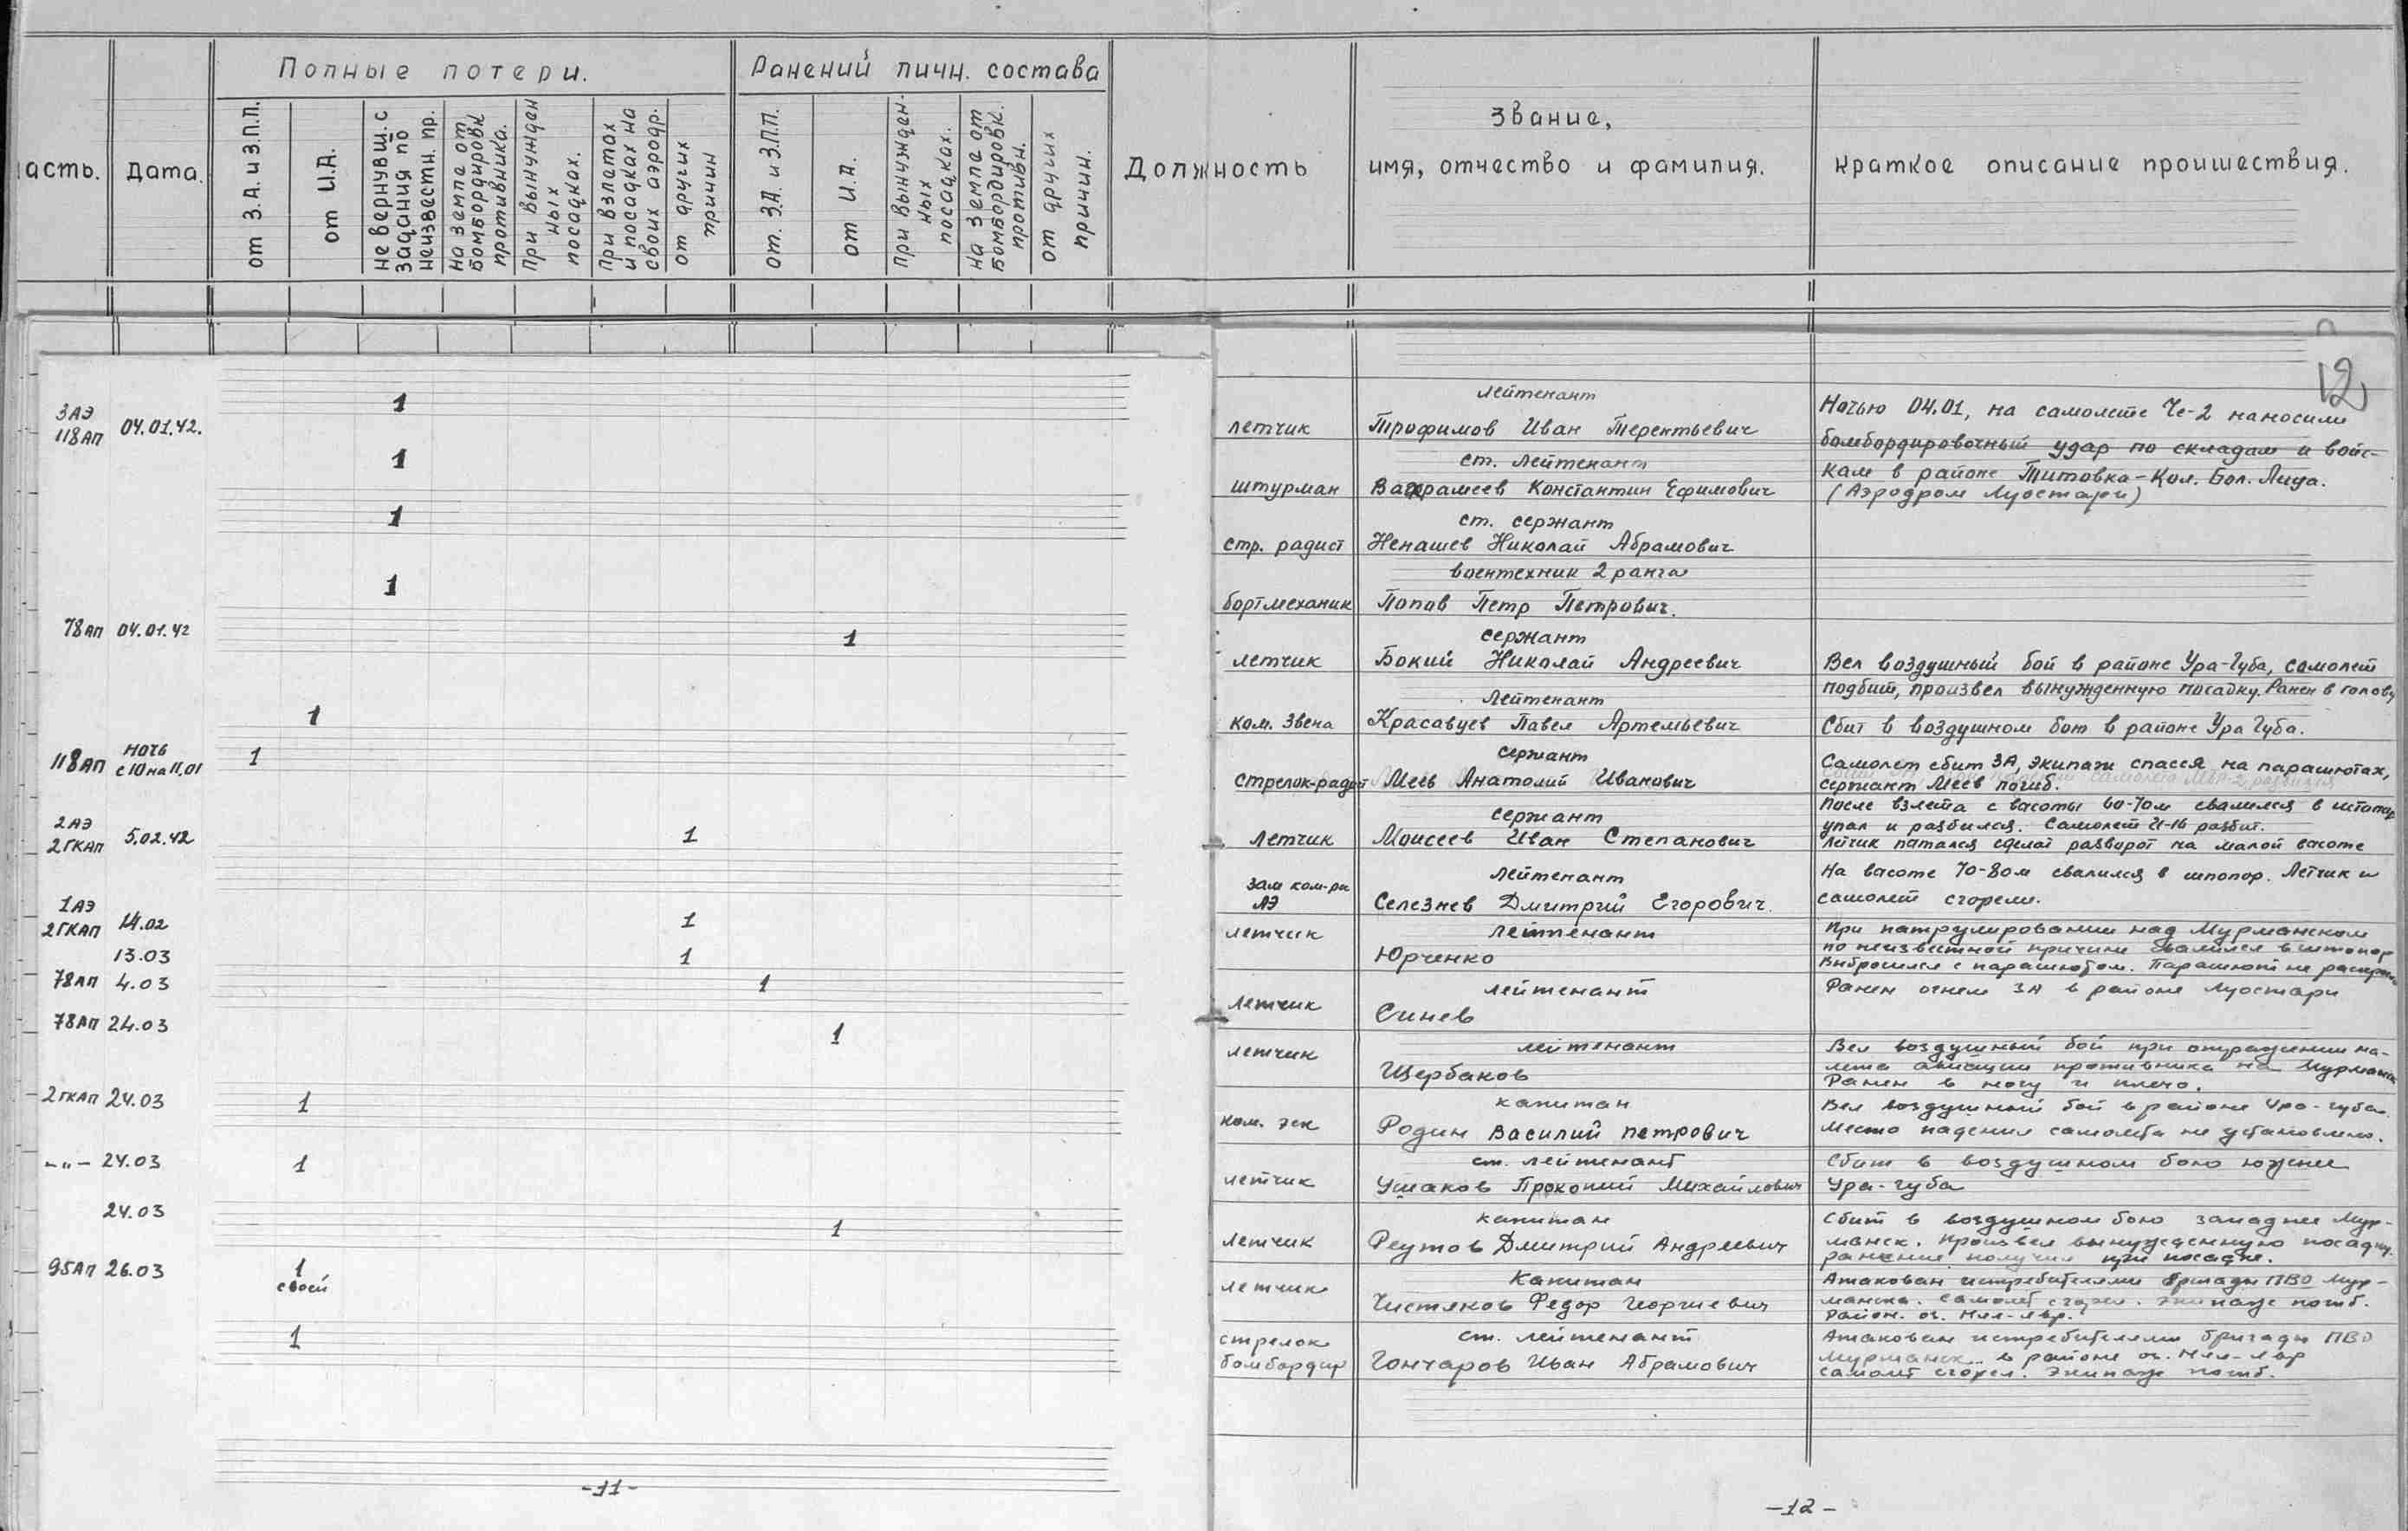 Полные потери.
Ранений личн. состава
асть.
Дата.
от З.А. и З.П.П.
от И.А.
не вернувш. с задания по неизвестн. пр.
на земле от бомбордировк противника.
при вынужден ных посадках.
при взлетах и посадках на своих аэродр.
от других причин
от. З.А. и З.П.П.
от И.А.
при вынужден. ных посадках.
на земле от бомбордировк. противн.
от других причин.
Должность
Звание,
имя, отчество и фамилия.
краткое описание происшествия.
12
3АЭ
118АП 04.01.42. 1
летчик
лейтенант
Трофимов Иван Терентьевич
Ночью 04.01, на самолете Че-2 наносили
бомбордировочный удар по складам и войс-
кам в районе Титовка-Кол. Бол. Лица.
(Аэродром Луостари)
1
штурман
ст. лейтенант
Вахрамеев Константин Ефимович
1
стр. радист
ст. сержант
Ненашев Николай Абрамович
1
бортмеханик
воентехник 2 ранга
Попов Петр Петрович.
78АП 04.01.42 1
летчик
сержант
Бокий Николай Андреевич
Вел воздушный бой в районе Ура-Губа, самолет
подбит, произвел вынужденную посадку. Ранен в голову
1
ком. звена
лейтенант
Красавцев Павел Артемьевич
Сбит в воздушном бою в районе Ура Губа.
118АП ночь
с 10 на 11.01 1
стрелок-радист
сержант
Меев Анатолий Иванович
Самолет сбит ЗА, экипаж спасся на парашютах,
сержант Меев погиб.
2АЭ
2ГКАП 5.02.42 1
Летчик
сержант
Моисеев Иван Степанович
После взлета с васоты 60-70м свалился в штопор
упал и разбился. Самолет И-16 разбит.
Летчик патался сделат разворот на малой васоте
1АЭ
2ГКАП 14.02 1
зам ком-ра
АЭ
Лейтенант
Селезнев Дмитрий Егорович.
На васоте 70-80м свалился в шпопор. Летчик и
самолет сгорели.
13.03 1
летчик
лейтенант
Юрченко
При патрулировании над Мурманском
по неизвестной причине свалился в штопор
Выбросился с парашютом. Парашют не раскрылся
78АП 4.03 1
летчик
лейтенант
Синев
Ранен огнем ЗА в районе Луостари
78АП 24.03 1
летчик
лейтенант
Щербаков
Вел воздушный бой при отражении на-
лета авиации противника на Мурманск
Ранен в ногу и плечо.
2ГКАП 24.03 1
ком. эск
капитан
Родин Василий Петрович
Вел воздушный бой в районе Ура-губа.
Место падения самолета не установлено.
-"- 24.03 1
летчик
ст. лейтенант
Ушаков Прокопий Михайлович
Сбит в воздушном бою южнее
Ура-губа
24.03 1
летчик
капитан
Реутов Дмитрий Андреевич
Сбит в воздушном бою западнее Мур-
манск. Произвел вынужденную посадку.
ранение получил при посадке.
95АП 26.03 1
своей
летчик
Капитан
Чистяков Федор Георгиевич
Атакован истребителями бригады ПВО Мур-
манска. Самолет сгорел. Экипаж погиб.
Район. оз. Нял-явр.
1
стрелок
бомбардир
ст. лейтенант
Гончаров Иван Абрамович
Атакован истребителями бригады ПВО
Мурманск. в районе оз. Нял-явр
самолет сгорел. Экипаж погиб.
-11-
-12-